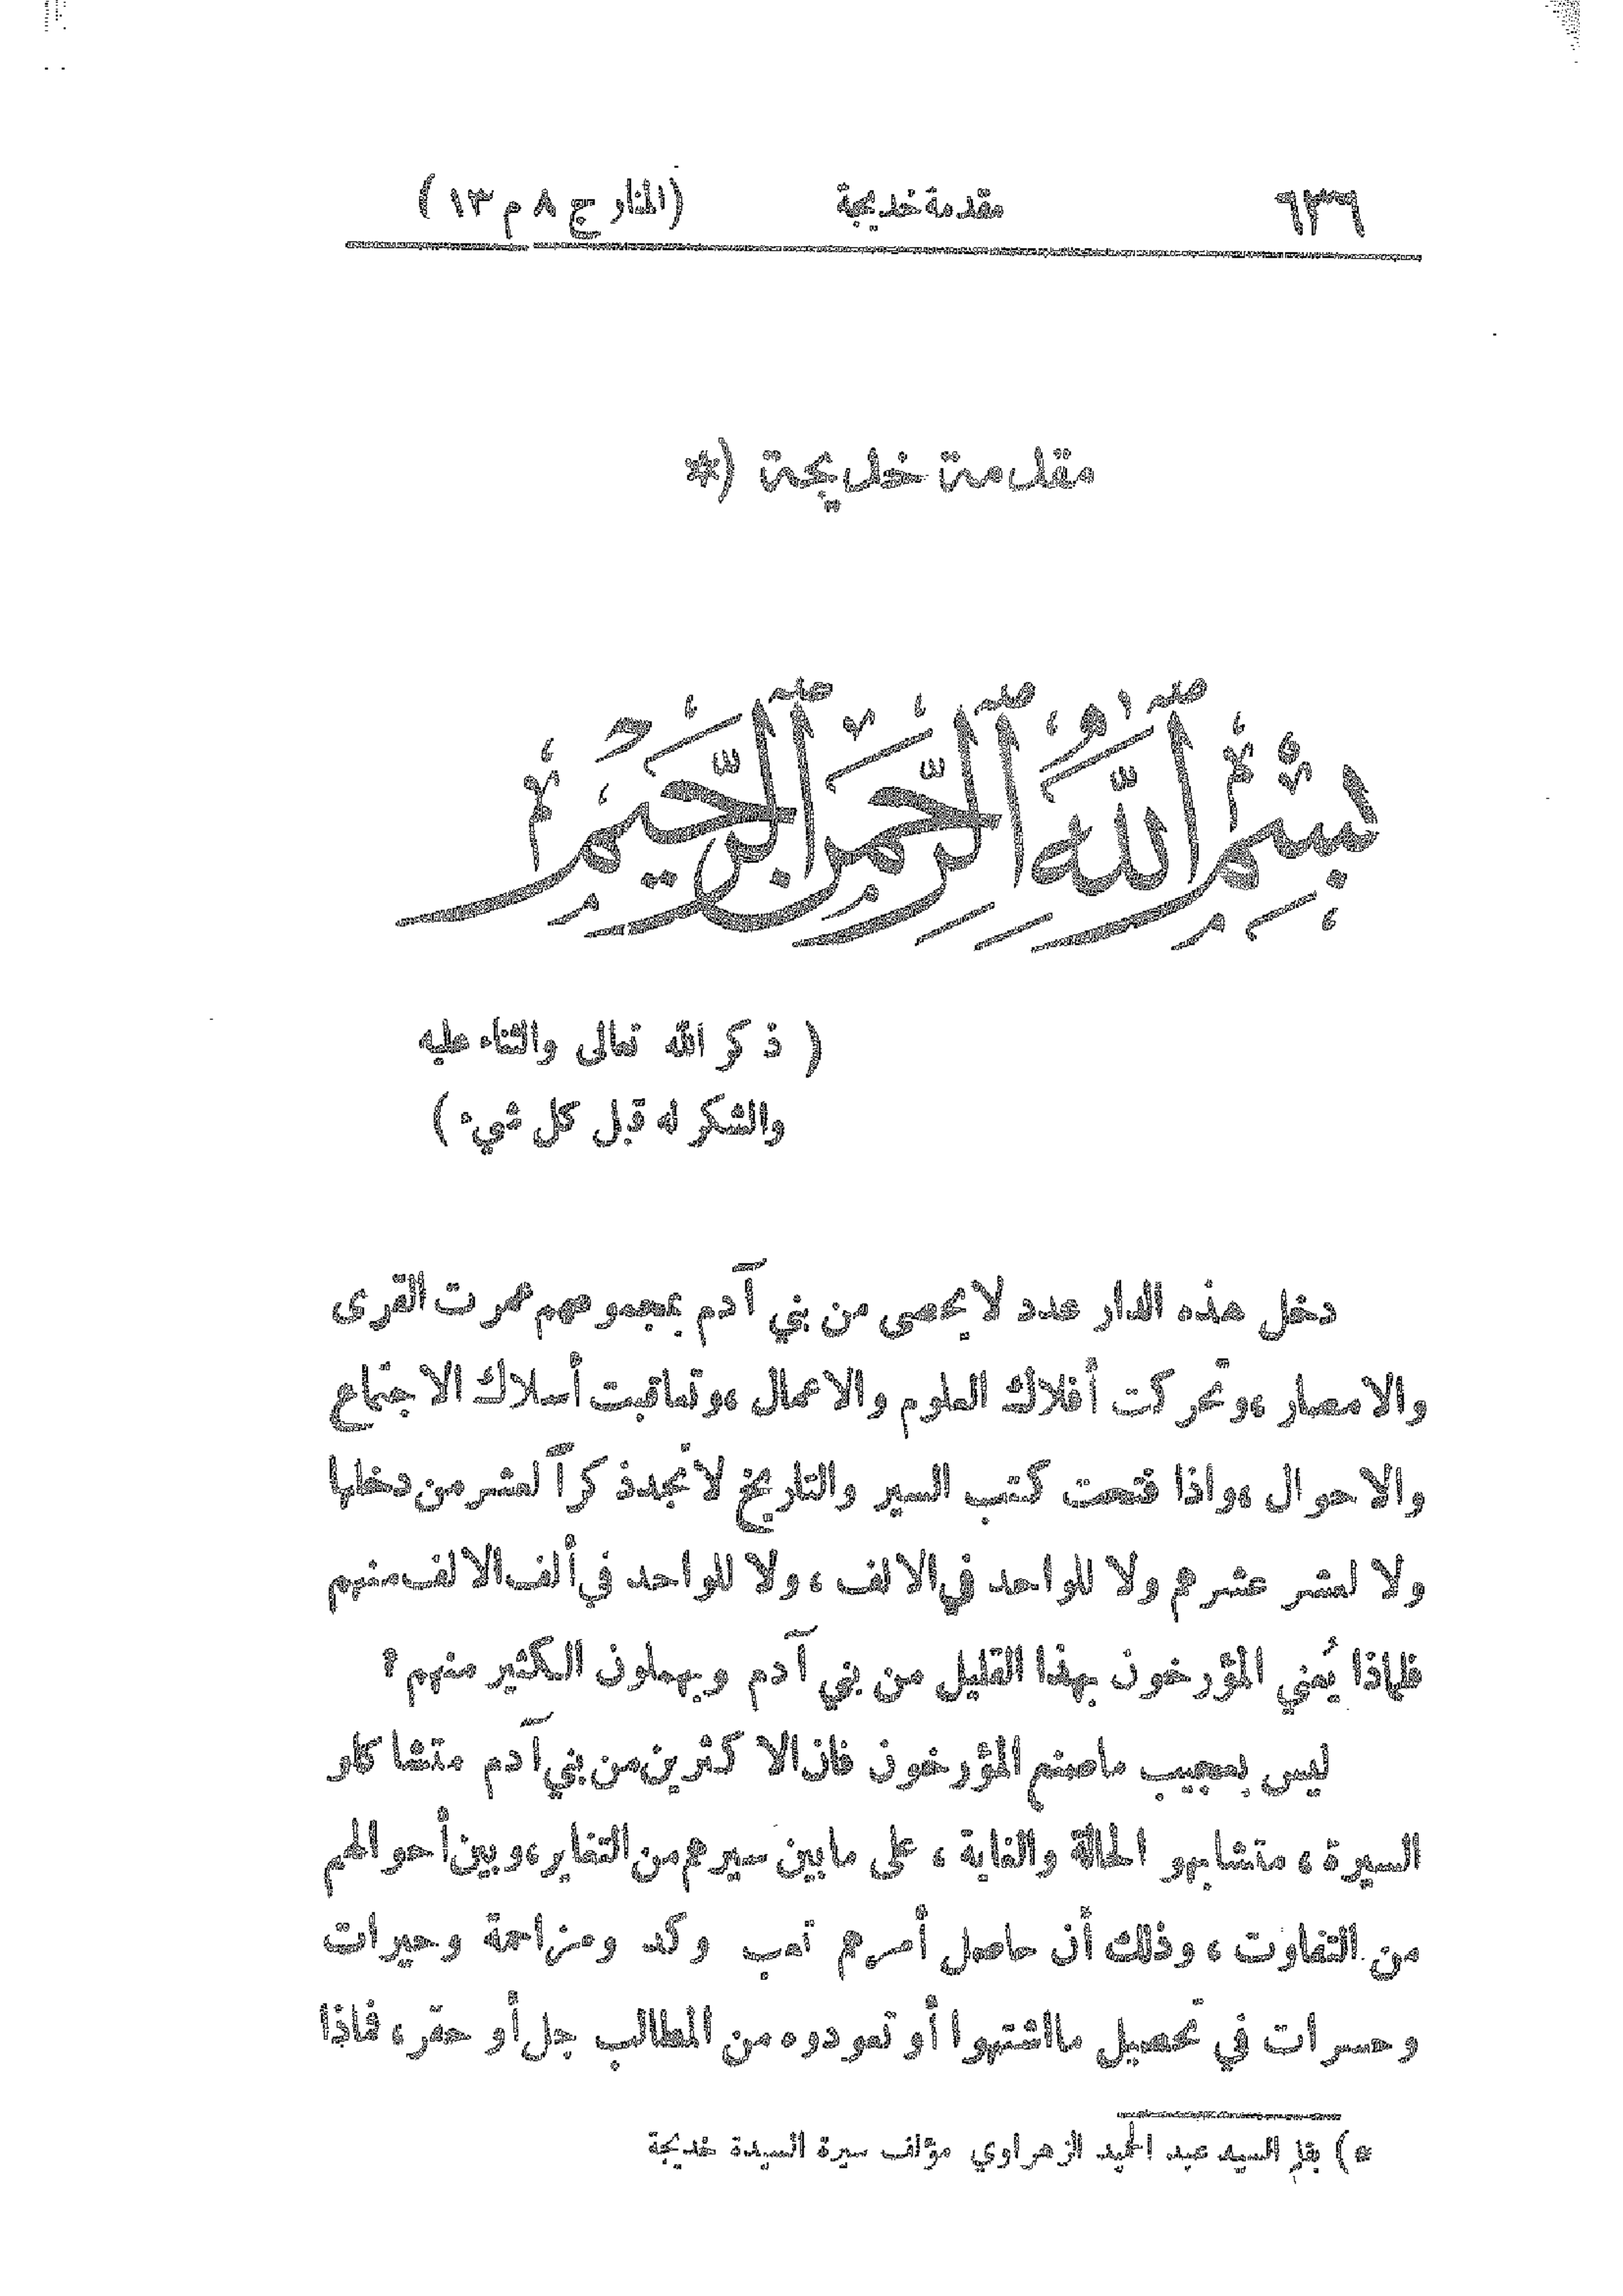 ٦٣٦ مقدمة خديجة (المنار ج ٨ م ١٣)
مقدمة خديجة (*
بِسْمِ اللَّهِ الرَّحْمَنِ الرَّحِيمِ
( ذكر الله تعالى والثناء عليه
والشكر له قبل كل شيء )
دخل هذه الدار عدد لا يحصى من بني آدم بمجموعهم عمرت القرى
والامصار ، وتحركت أفلاك العلوم والاعمال ، وتعاقبت أسلاك الاجتماع
والاحوال ، واذا فتحت كتب السير والتاريخ لا تجد ذكراً لعشر من دخلها
ولا لعشر عشرهم ولا للواحد في الالف ، ولا للواحد في ألف الالف منهم
فلماذا يُعني المؤرخون بهذا القليل من بني آدم ويهملون الكثير منهم ؟
ليس بعجيب ما صنع المؤرخون فان الاكثرين من بني آدم متشاكلو
السيرة ، متشابهو الحالة والغاية ، على ما بين سيرهم من التغاير ، وبين أحوالهم
من التفاوت ، وذلك أن حاصل أمرهم تعب وكد ومزاحمة وحيرات
وحسرات في تحصيل ما اشتهوا أو تعودوه من المطالب جل أو حقر ، فاذا
*) بقلم السيد عبد الحميد الزهراوي مؤلف سيرة السيدة خديجة